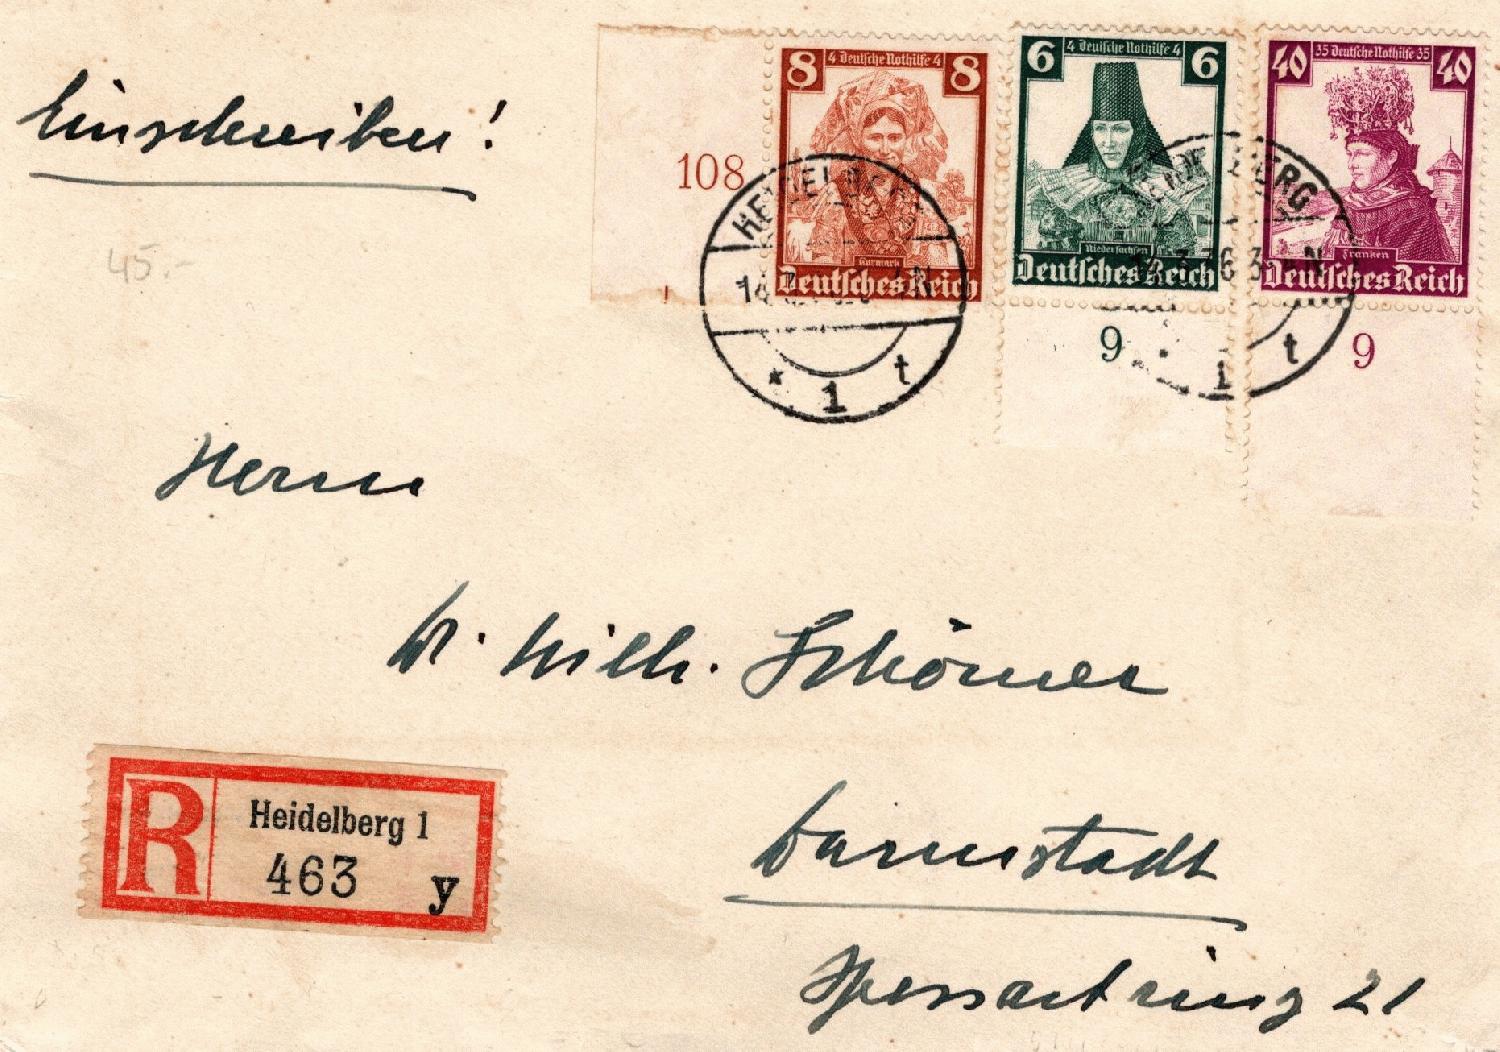 Einschreiben!
108
8 4 Deutsche Nothilfe 4 8
Kurmark
Deutsches Reich
6 4 Deutsche Nothilfe 4 6
Niedersachsen
Deutsches Reich
9
40 35 Deutsche Nothilfe 35 40
Franken
Deutsches Reich
9
HEIDELBERG
* 1 t
HEIDELBERG
1 t
45.-
Herrn
Dr. Wilh. Schörner
Darmstadt
Spessartring 21
R
Heidelberg 1
463 y